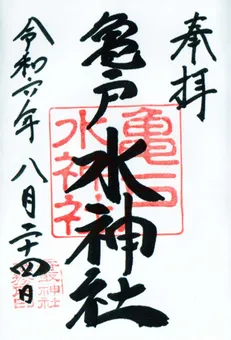 奉拝
亀戸水神社
令和六年八月二十四日
亀戸
水神社